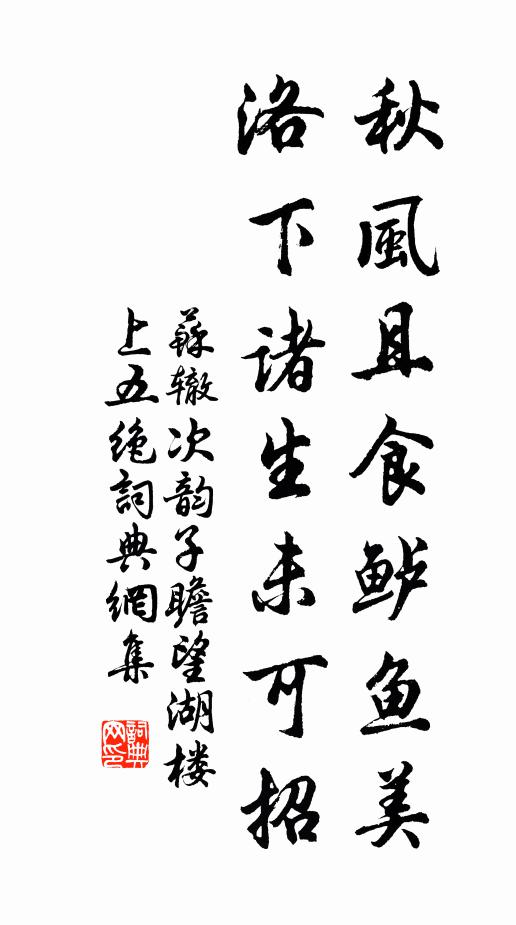 秋風且食鲈鱼美
洛下诸生未可招
蘇辙次韵子瞻望湖楼
上五绝詞典網集
詞典